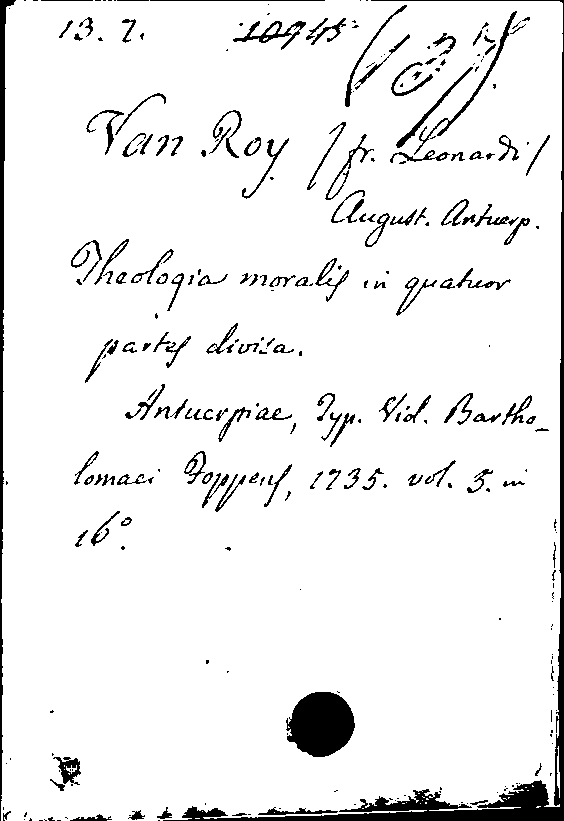 13. 7. 10945
Van Roy / fr. Leonardi /
August. Antuerp.
Theologia moralis in quatuor
partes divisa.
Antuerpiae, Typ. Vid. Bartho-
lomaei Foppens, 1735. vol. 5. in
16°.